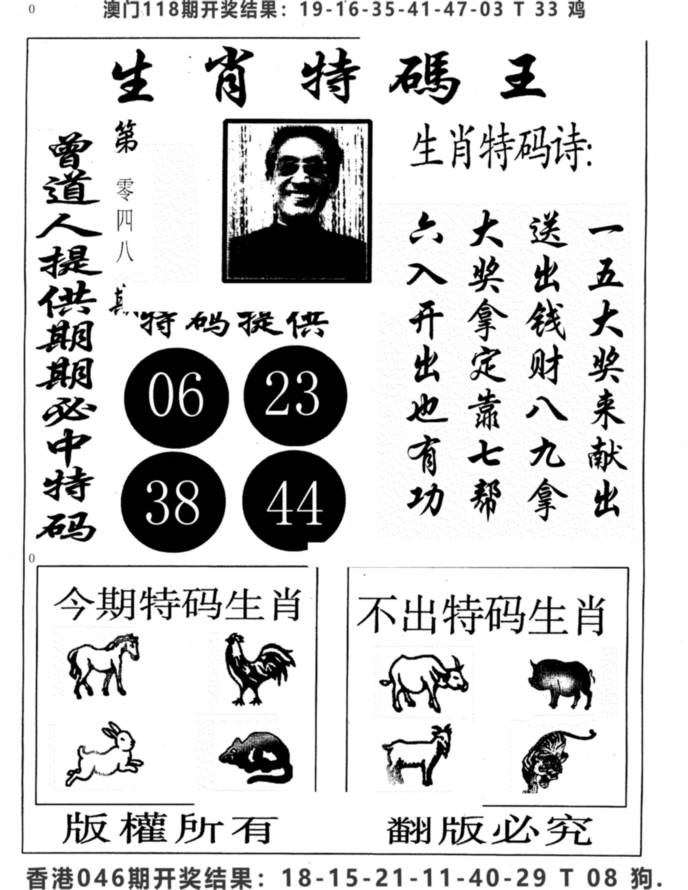 0
澳门118期开奖结果：19-16-35-41-47-03 T 33 鸡
生肖特碼王
曾道人提供期期必中特码
第零四八期
生肖特码诗:
一五大奖来献出
送出钱财八九拿
大奖拿定靠七帮
六入开出也有功
特码提供
06 23
38 44
0
今期特码生肖
不出特码生肖
版權所有
翻版必究
香港046期开奖结果：18-15-21-11-40-29 T 08 狗.